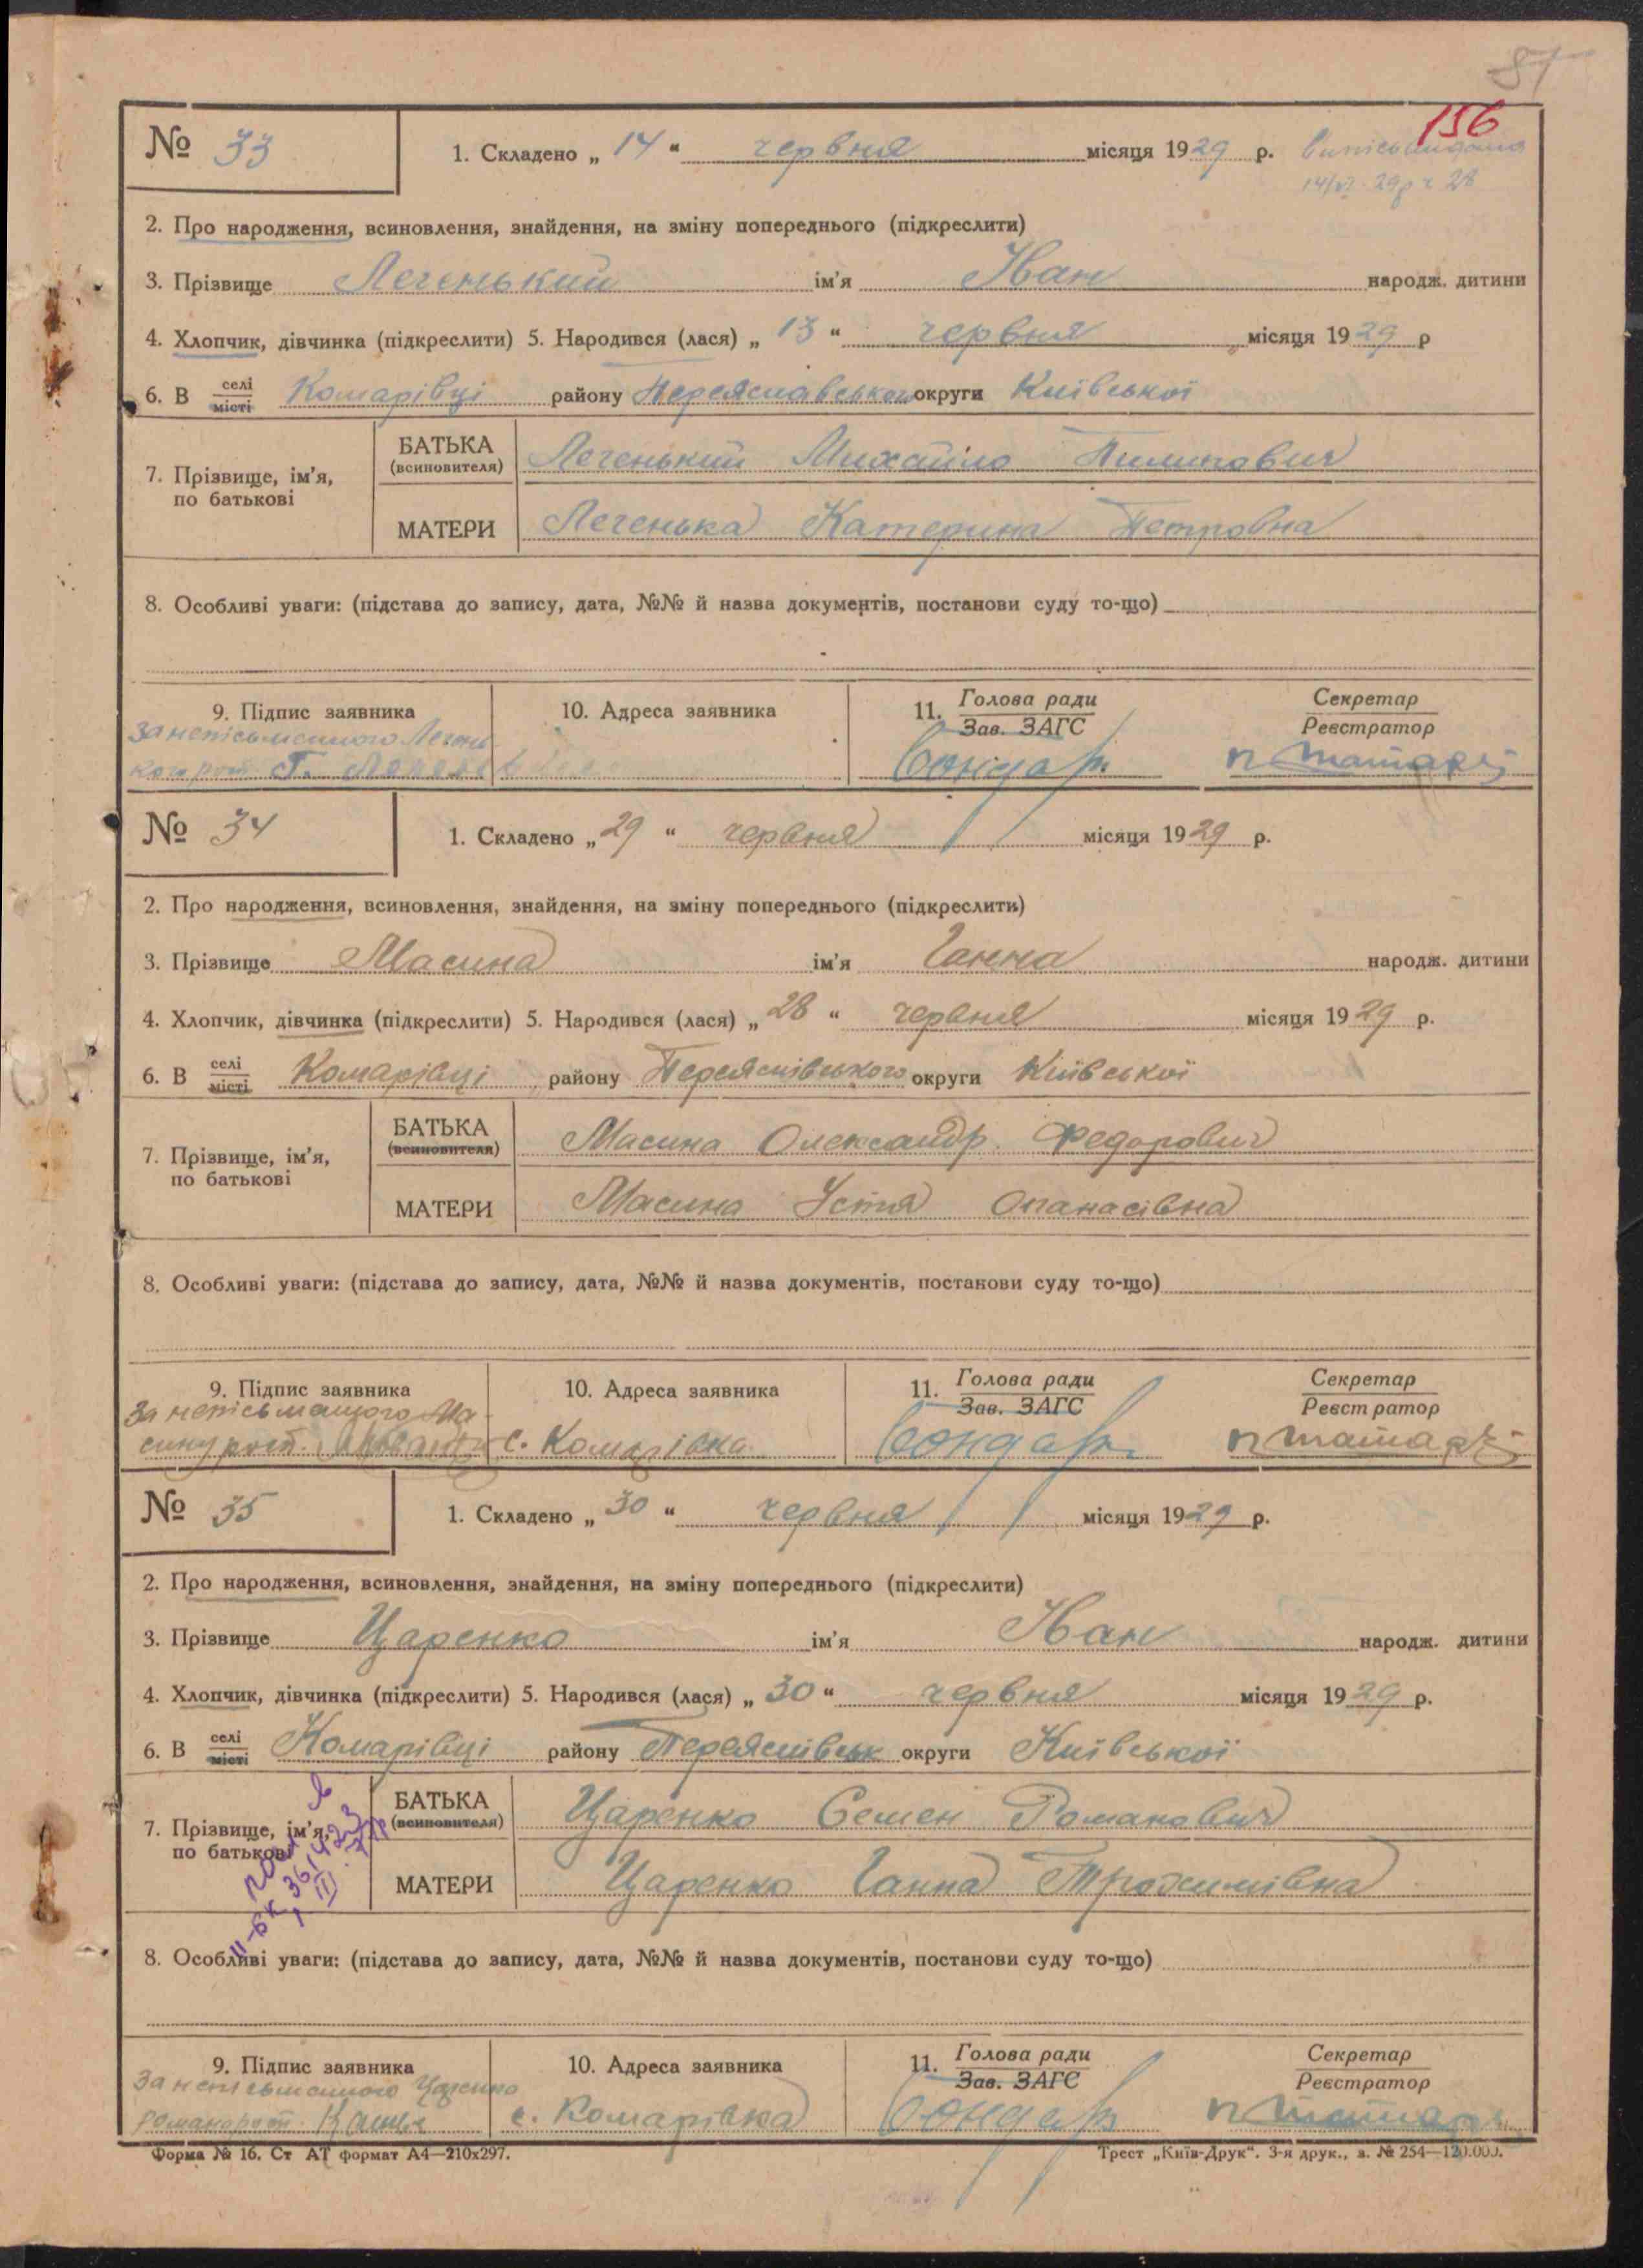 87
156
№ 33
1. Складено „ 14 “ червня місяця 1929 р.
14/VI 29р ч 28
2. Про народження, всиновлення, знайдення, на зміну попереднього (підкреслити)
3. Прізвище Легенький ім'я Іван народж. дитини
4. Хлопчик, дівчинка (підкреслити) 5. Народився (лася) „ 13 “ червня місяця 1929 р
6. В селі місті Комарівці району Переяславського округи Київської
7. Прізвище, ім'я, по батькові
БАТЬКА (всиновителя) Легенький Михайло Пилипович
МАТЕРИ Легенька Катерина Петровна
8. Особливі уваги: (підстава до запису, дата, №№ й назва документів, постанови суду то-що)
9. Підпис заявника
10. Адреса заявника
11. Голова ради Зав. ЗАГС
Секретар Реєстратор
За неписьменного Легень
кого розп. Г.
Бондар
№ 34
1. Складено „ 29 “ червня місяця 1929 р.
2. Про народження, всиновлення, знайдення, на зміну попереднього (підкреслити)
3. Прізвище Масина ім'я Ганна народж. дитини
4. Хлопчик, дівчинка (підкреслити) 5. Народився (лася) „ 28 “ червня місяця 1929 р.
6. В селі місті Комарівці району Переяслівського округи Київської
7. Прізвище, ім'я, по батькові
БАТЬКА (всиновителя) Масина Олександр Федорович
МАТЕРИ Масина Устя Опанасівна
8. Особливі уваги: (підстава до запису, дата, №№ й назва документів, постанови суду то-що)
9. Підпис заявника
10. Адреса заявника
11. Голова ради Зав. ЗАГС
Секретар Реєстратор
За неписьменного Ма
сину розп.
с. Комарівка
Бондар
№ 35
1. Складено „ 30 “ червня місяця 1929 р.
2. Про народження, всиновлення, знайдення, на зміну попереднього (підкреслити)
3. Прізвище Царенко ім'я Іван народж. дитини
4. Хлопчик, дівчинка (підкреслити) 5. Народився (лася) „ 30 “ червня місяця 1929 р.
6. В селі місті Комарівці району Переяслівськ округи Київської
7. Прізвище, ім'я, по батькові
БАТЬКА (всиновителя) Царенко Семен Романович
МАТЕРИ Царенко Ганна Трохимівна
8. Особливі уваги: (підстава до запису, дата, №№ й назва документів, постанови суду то-що)
9. Підпис заявника
10. Адреса заявника
11. Голова ради Зав. ЗАГС
Секретар Реєстратор
За неписьменного Царенко
с. Комарівка
Бондар
Форма № 16. Ст АТ формат А4—210х297.
Трест „Київ-Друк“. 3-я друк., з. № 254—120.000.